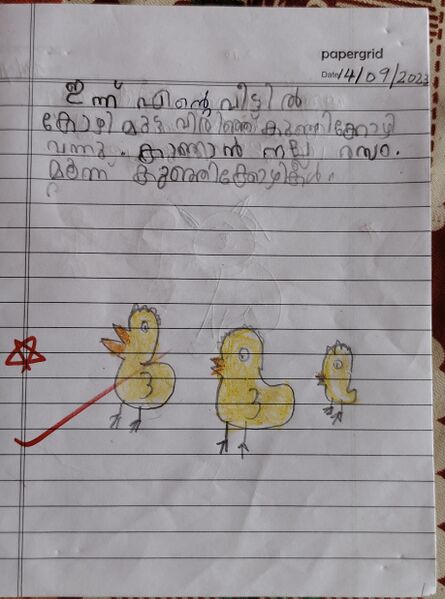 papergrid
Date 14/09/2023
ഇന്ന് എന്റെ വീട്ടിൽ
കോഴി മുട്ട വിരിഞ്ഞ് കുഞ്ഞിക്കോഴി
വന്നു. കാണാൻ നല്ല രസം.
മൂന്ന് കുഞ്ഞിക്കോഴികൾ.